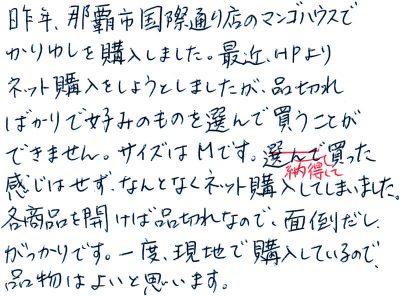 昨年、那覇市国際通り店のマンゴハウスで
かりゆしを購入しました。最近、HPより
ネット購入をしようとしましたが、品切れ
ばかりで好みのものを選んで買うことが
できません。サイズはMです。選んで買った
納得して
感じはせず、なんとなくネット購入してしまいました。
各商品を開けば品切れなので、面倒だし、
がっかりです。一度、現地で購入しているので、
品物はよいと思います。